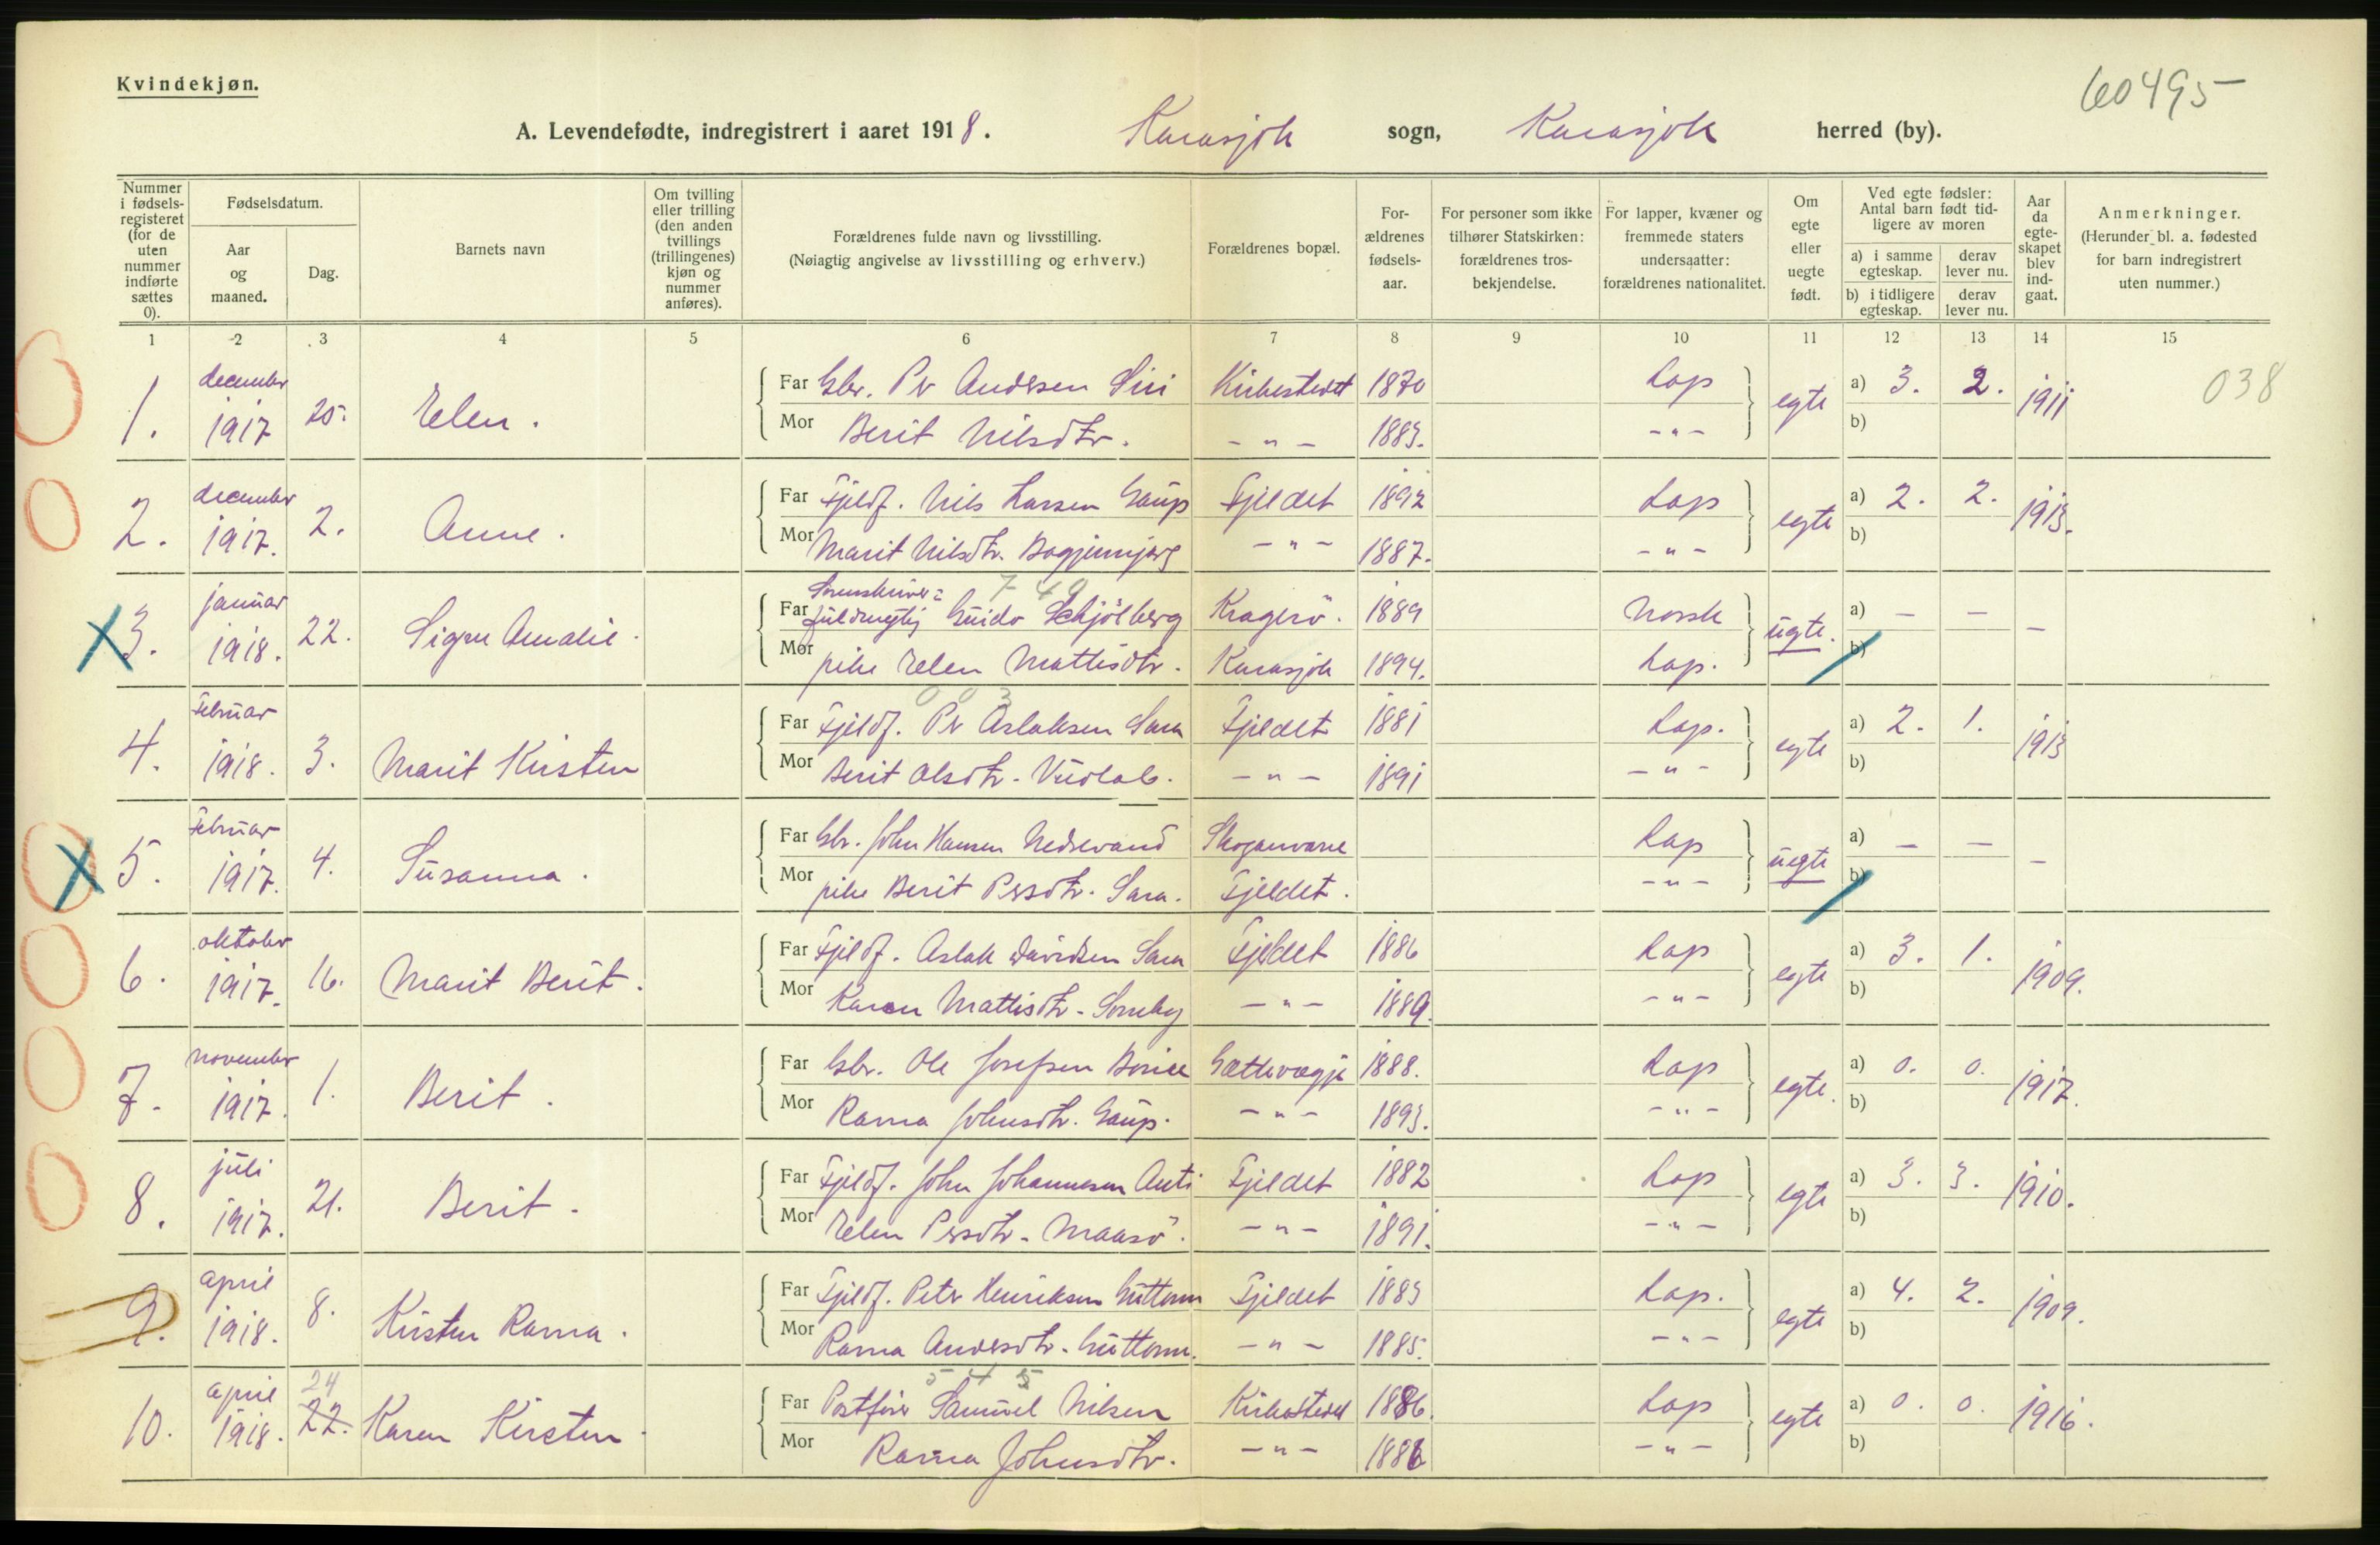 Kvindekjøn.
60495
A. Levendefødte, indregistrert i aaret 1918. Karasjok sogn, Karasjok herred (by).
Nummer i fødsels-registeret (for de uten nummer indførte sættes 0).
Fødselsdatum.
Aar og maaned.
Dag.
Barnets navn
Om tvilling eller trilling (den anden tvillings (trillingenes) kjøn og nummer anføres).
Forældrenes fulde navn og livsstilling.
(Nøiagtig angivelse av livsstilling og erhverv.)
Forældrenes bopæl.
For-ældrenes fødsels-aar.
For personer som ikke tilhører Statskirken: forældrenes tros-bekjendelse.
For lapper, kvæner og fremmede staters undersaatter: forældrenes nationalitet.
Om egte eller uegte født.
Ved egte fødsler: Antal barn født tid-ligere av moren
a) i samme egteskap. derav lever nu.
b) i tidligere egteskap. derav lever nu.
Aar da egte-skapet blev ind-gaat.
Anmerkninger.
(Herunder bl. a. fødested for barn indregistrert uten nummer.)
1 2 3 4 5 6 7 8 9 10 11 12 13 14 15
1. december 1917 25. Elen. Far Gbr. Per Andersen Siri Kirkestedet 1870 Lap egte a) 3. 2. 1911 038
Mor Berit Nilsdtr. - " - 1883. - " - b)
2. december 1917. 2. Anne. Far Fjeldf. Nils Larsen Gaup Fjeldet 1892 Lap egte a) 2. 2. 1913.
Mor Marit Nilsdtr. - " - 1887. - " - b)
7 49
3. januar 1918. 22. Signe Amalie. Far Sorenskriver= fuldmegtig Guido Schjölberg Kragerö. 1889 Norsk uegte. a) - - -
Mor pike Elen Mattisdtr. Karasjok 1894. Lap. b)
0 0 3
4. Februar 1918. 3. Marit Kirsten Far Fjeldf. Per Aslaksen Sara Fjeldet 1881 Lap. egte a) 2. 1. 1913
Mor Berit Olsdtr. - " - 1891 - " - b)
5. Februar 1917. 4. Susanna. Far Gbr. John Hansen Nedrevand Skoganvarre Lap uegte a) - - -
Mor pike Berit Persdtr. Sara. Fjeldet. - " - b)
6. oktober 1917. 16. Marit Berit. Far Fjeldf. Aslak Davidsen Sara Fjeldet 1886 Lap egte a) 3. 1. 1909.
Mor Karen Mattisdtr. Somby - " - 1889. - " - b)
7. november 1917. 1. Berit. Far Gbr. Ole Josefsen Gættevægje 1888. Lap egte. a) 0. 0. 1917.
Mor Ravna Johnsdtr. Gaup. - " - 1893. - " - b)
8. juli 1917. 21. Berit. Far Fjeldf. John Johannesen Anti Fjeldet 1882 Lap egte a) 3. 3. 1910.
Mor Elen Persdtr. Maasö. - " - 1891. - " - b)
9. april 1918. 8. Kirsten Ravna. Far Fjeldf. Peter Henriksen Guttorm Fjeldet 1883 Lap. egte a) 4. 2. 1909.
Mor Ravna Andersdtr. Guttorm. - " - 1885. - " - b)
5 4 5
10. april 1918. 24 22. Karen Kirsten. Far Postfører Samuel Nilsen Kirkestedet 1886. Lap egte a) 0. 0. 1916.
Mor Ravna Johnsdtr. - " - 1886 - " - b)